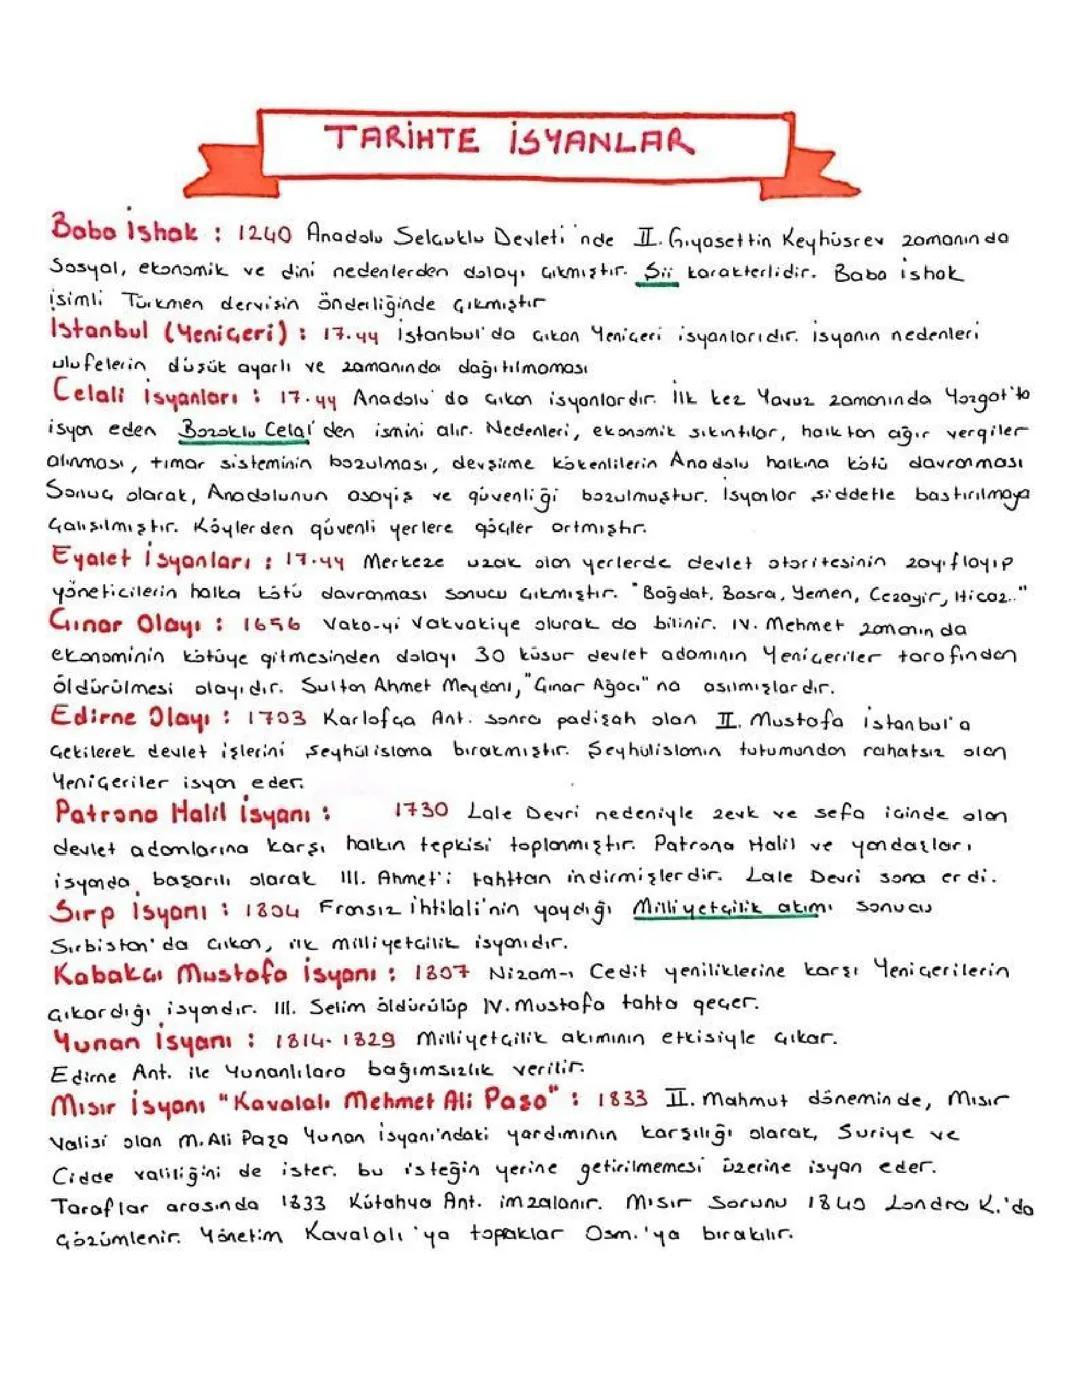 TARİHTE İSYANLAR
Baba İshak : 1240 Anadolu Selçuklu Devleti'nde II. Gıyasettin Keyhüsrev zamanında
Sosyal, ekonomik ve dini nedenlerden dolayı çıkmıştır. Şii karakterlidir. Baba ishak
isimli Türkmen dervişin önderliğinde çıkmıştır
İstanbul (Yeniçeri) : 17.yy İstanbul'da çıkan Yeniçeri isyanlarıdır. İsyanın nedenleri
ulufelerin düşük ayarlı ve zamanında dağıtılmaması
Celali isyanları : 17.yy Anadolu'da çıkan isyanlardır. İlk kez Yavuz zamanında Yozgat'ta
isyan eden Bozoklu Celal'den ismini alır. Nedenleri, ekonomik sıkıntılar, halktan ağır vergiler
alınması, tımar sisteminin bozulması, devşirme kökenlilerin Anadolu halkına kötü davranması
Sonuç olarak, Anadolunun asayiş ve güvenliği bozulmuştur. İsyanlar şiddetle bastırılmaya
çalışılmıştır. Köylerden güvenli yerlere göçler artmıştır.
Eyalet İsyanları : 17.yy Merkeze uzak olan yerlerde devlet otoritesinin zayıflayıp
yöneticilerin halka kötü davranması sonucu çıkmıştır. "Bağdat, Basra, Yemen, Cezayir, Hicaz.."
Çınar Olayı : 1656 Vaka-yi Vakvakiye olurak da bilinir. IV. Mehmet zamanında
ekonominin kötüye gitmesinden dolayı 30 küsur devlet adamının Yeniçeriler tarafından
öldürülmesi olayıdır. Sultan Ahmet Meydanı, "Çınar Ağacı" na asılmışlardır.
Edirne Olayı : 1703 Karlofça Ant. sonra padişah olan II. Mustafa İstanbul'a
Çekilerek devlet işlerini şeyhülislama bırakmıştır. Şeyhülislamın tutumundan rahatsız olan
Yeniçeriler isyan eder.
Patrona Halil İsyanı : 1730 Lale Devri nedeniyle zevk ve sefa içinde olan
devlet adamlarına karşı halkın tepkisi toplanmıştır. Patrona Halil ve yandaşları
isyanda başarılı olarak III. Ahmet'i tahttan indirmişlerdir. Lale Devri sona erdi.
Sırp İsyanı : 1804 Fransız İhtilali'nin yaydığı Milliyetçilik akımı sonucu
Sırbistan'da çıkan, ilk milliyetçilik isyanıdır.
Kabakçı Mustafa İsyanı : 1807 Nizam-ı Cedit yeniliklerine karşı Yeniçerilerin
çıkardığı isyandır. III. Selim öldürülüp IV. Mustafa tahta geçer.
Yunan İsyanı : 1814-1829 Milliyetçilik akımının etkisiyle çıkar.
Edirne Ant. ile Yunanlılara bağımsızlık verilir.
Mısır İsyanı "Kavalalı Mehmet Ali Paşa" : 1833 II. Mahmut döneminde, Mısır
Valisi olan M. Ali Paşa Yunan isyanı'ndaki yardımının karşılığı olarak, Suriye ve
Cidde valiliğini de ister. bu isteğin yerine getirilmemesi üzerine isyan eder.
Taraflar arasında 1833 Kütahya Ant. imzalanır. Mısır Sorunu 1840 Londra K.'da
çözümlenir. Yönetim Kavalalı'ya topaklar Osm.'ya bırakılır.